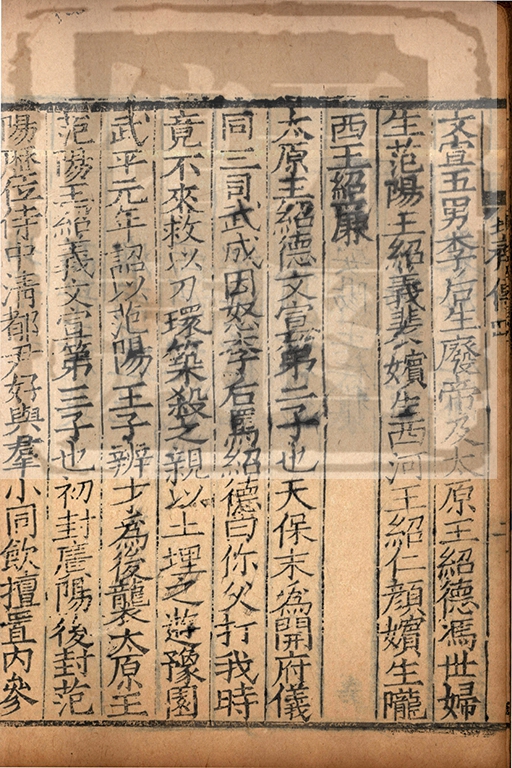 文宣五男李后生廢帝及太原王紹德馮世婦
生范陽王紹義裴嬪生西河王紹仁顏嬪生隴
西王紹廉
太原王紹德文宣第二子也天保末為開府儀
同三司武成因怒李后罵紹德曰你父打我時
竟不來救以刀環築殺之親以土埋之遊豫園
武平元年詔以范陽王子辨才為後襲太原王
范陽王紹義文宣第三子也初封廣陽後封范
陽歷位侍中清都尹好與羣小同飲擅置內參